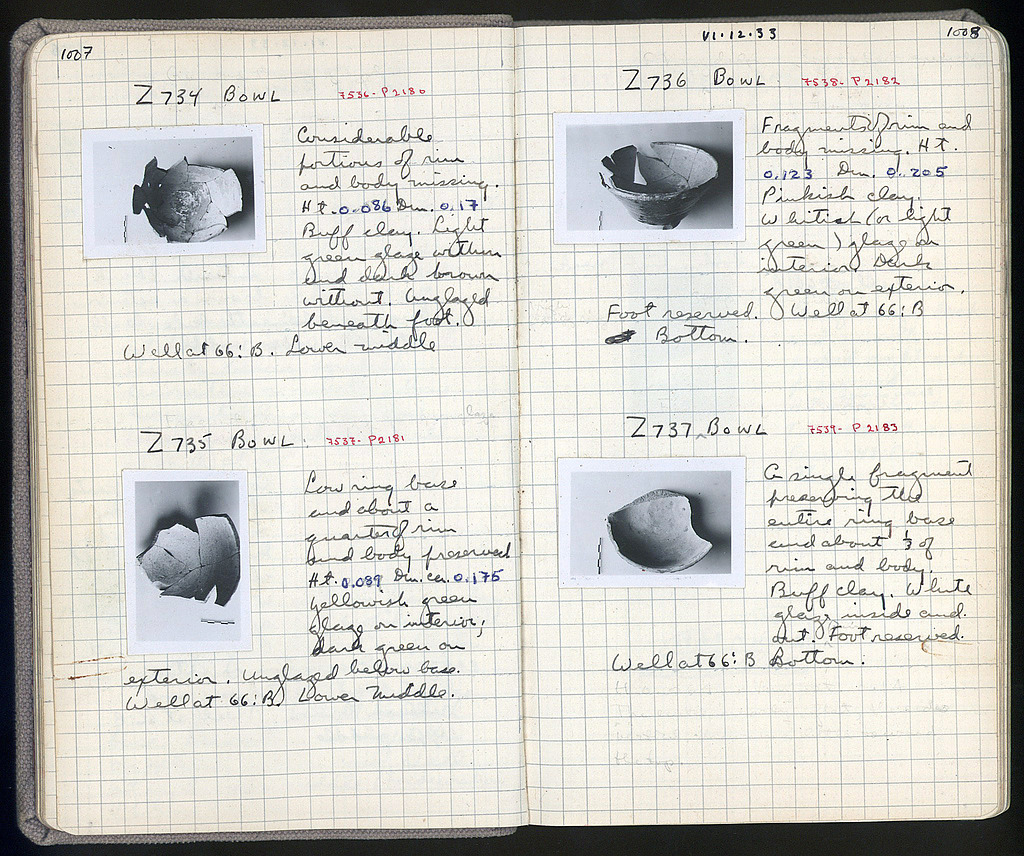 1007
Z 734 BOWL 7536 - P 2180
Considerable
portions of rim
and body missing.
Ht. 0.086 Dm. 0.17
Buff clay. Light
green glaze within
and dark brown
without. Unglazed
beneath foot.
Well at 66: B. Lower middle
Z 735 BOWL. 7537 - P 2181
Low ring base
and about a
quarter of rim
and body preserved
Ht. 0.089 Dm. ca. 0.175
Yellowish green
glaze on interior;
dark green on
exterior. Unglazed below base.
Well at 66: B. Lower Middle.
VI.12.33
1008
Z 736 BOWL 7538 - P 2182
Fragments of rim and
body missing. Ht.
0.123 Dm. 0.205
Pinkish clay.
Whitish (or light
green) glaze on
interior. Dark
green on exterior.
Foot reserved. Well at 66: B
Bottom.
Z 737 BOWL 7539 - P 2183
A single fragment
preserving the
entire ring base
and about 1/3 of
rim and body.
Buff clay. White
glaze inside and
out. Foot reserved.
Well at 66: B Bottom.